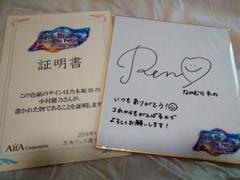 証明書
この色紙のサインは乃木坂46の
中村麗乃さんが、
書かれた物であることを証明します
AiiA Corporation
Ren
なかむられの
いつもありがとう!
これからもがんばるので
よろしくお願いします!